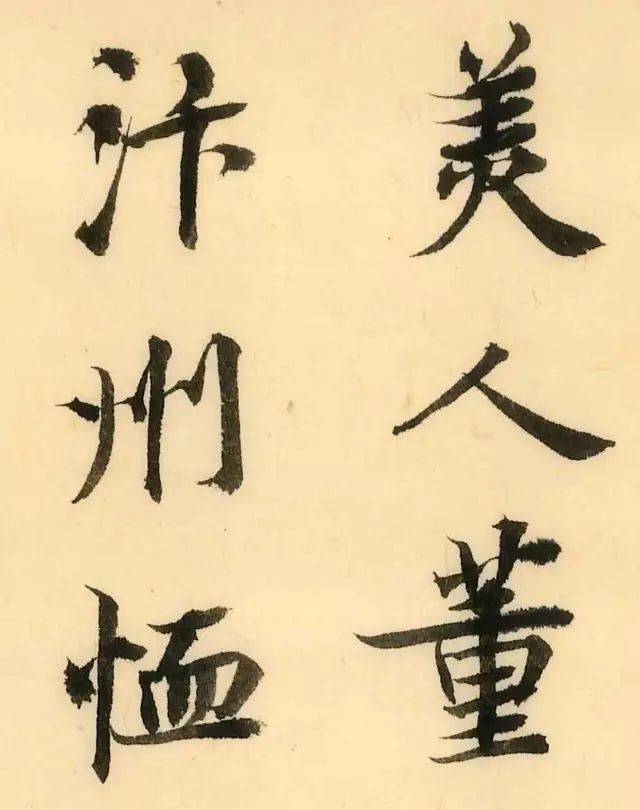 美人董
汴州恤